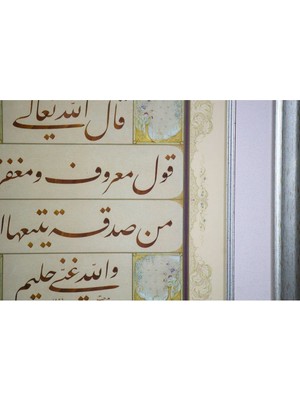 قال الله تعالى
قول معروف و مغفر
من صدقة يتبعها ا
والله غني حليم